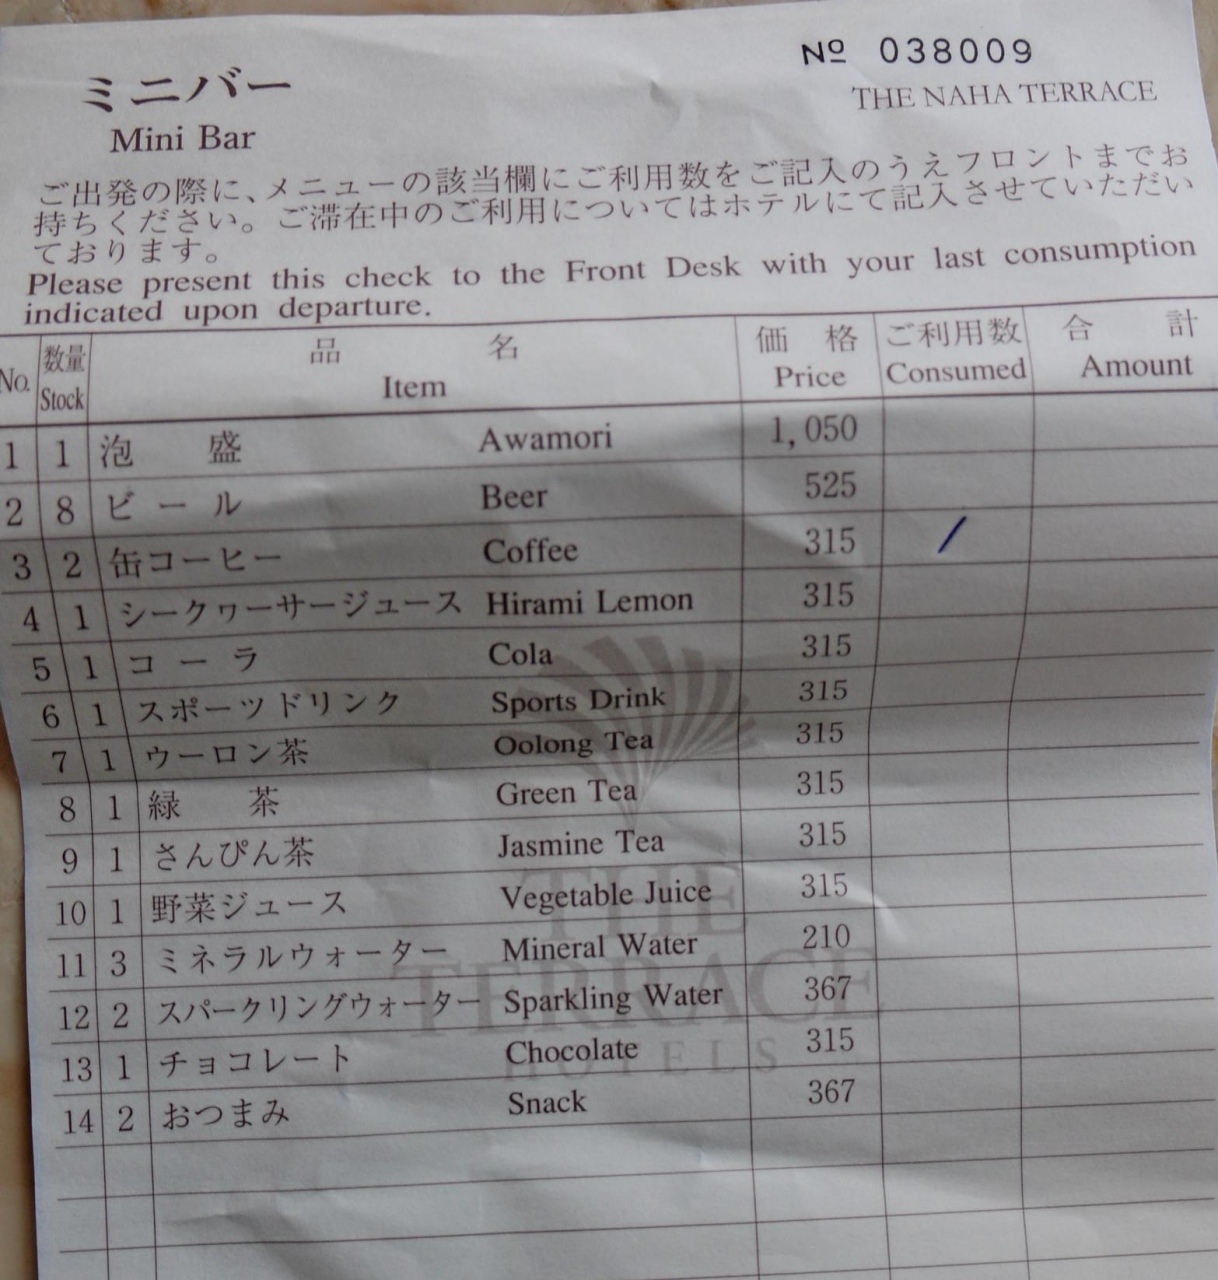 № 038009
ミニバー
THE NAHA TERRACE
Mini Bar
ご出発の際に、メニューの該当欄にご利用数をご記入のうえフロントまでお
持ちください。ご滞在中のご利用についてはホテルにて記入させていただい
ております。
Please present this check to the Front Desk with your last consumption
indicated upon departure.
No. 数量 Stock 品名 Item 価格 Price ご利用数 Consumed 合計 Amount
1 1 泡盛 Awamori 1,050
2 8 ビール Beer 525
3 2 缶コーヒー Coffee 315 /
4 1 シークヮーサージュース Hirami Lemon 315
5 1 コーラ Cola 315
6 1 スポーツドリンク Sports Drink 315
7 1 ウーロン茶 Oolong Tea 315
8 1 緑茶 Green Tea 315
9 1 さんぴん茶 Jasmine Tea 315
10 1 野菜ジュース Vegetable Juice 315
11 3 ミネラルウォーター Mineral Water 210
12 2 スパークリングウォーター Sparkling Water 367
13 1 チョコレート Chocolate 315
14 2 おつまみ Snack 367
THE
TERRACE
HOTELS